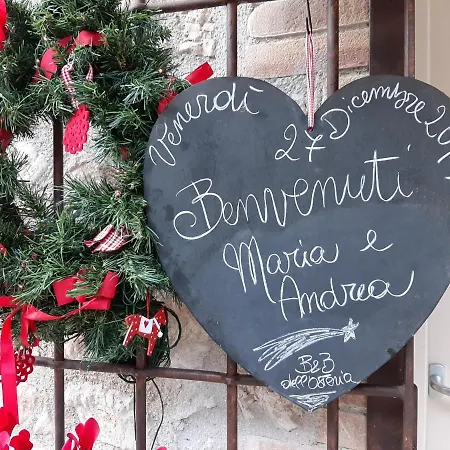 Venerdì 27 Dicembre 201
Benvenuti
Maria e
Andrea
B&B
dell'Osteria